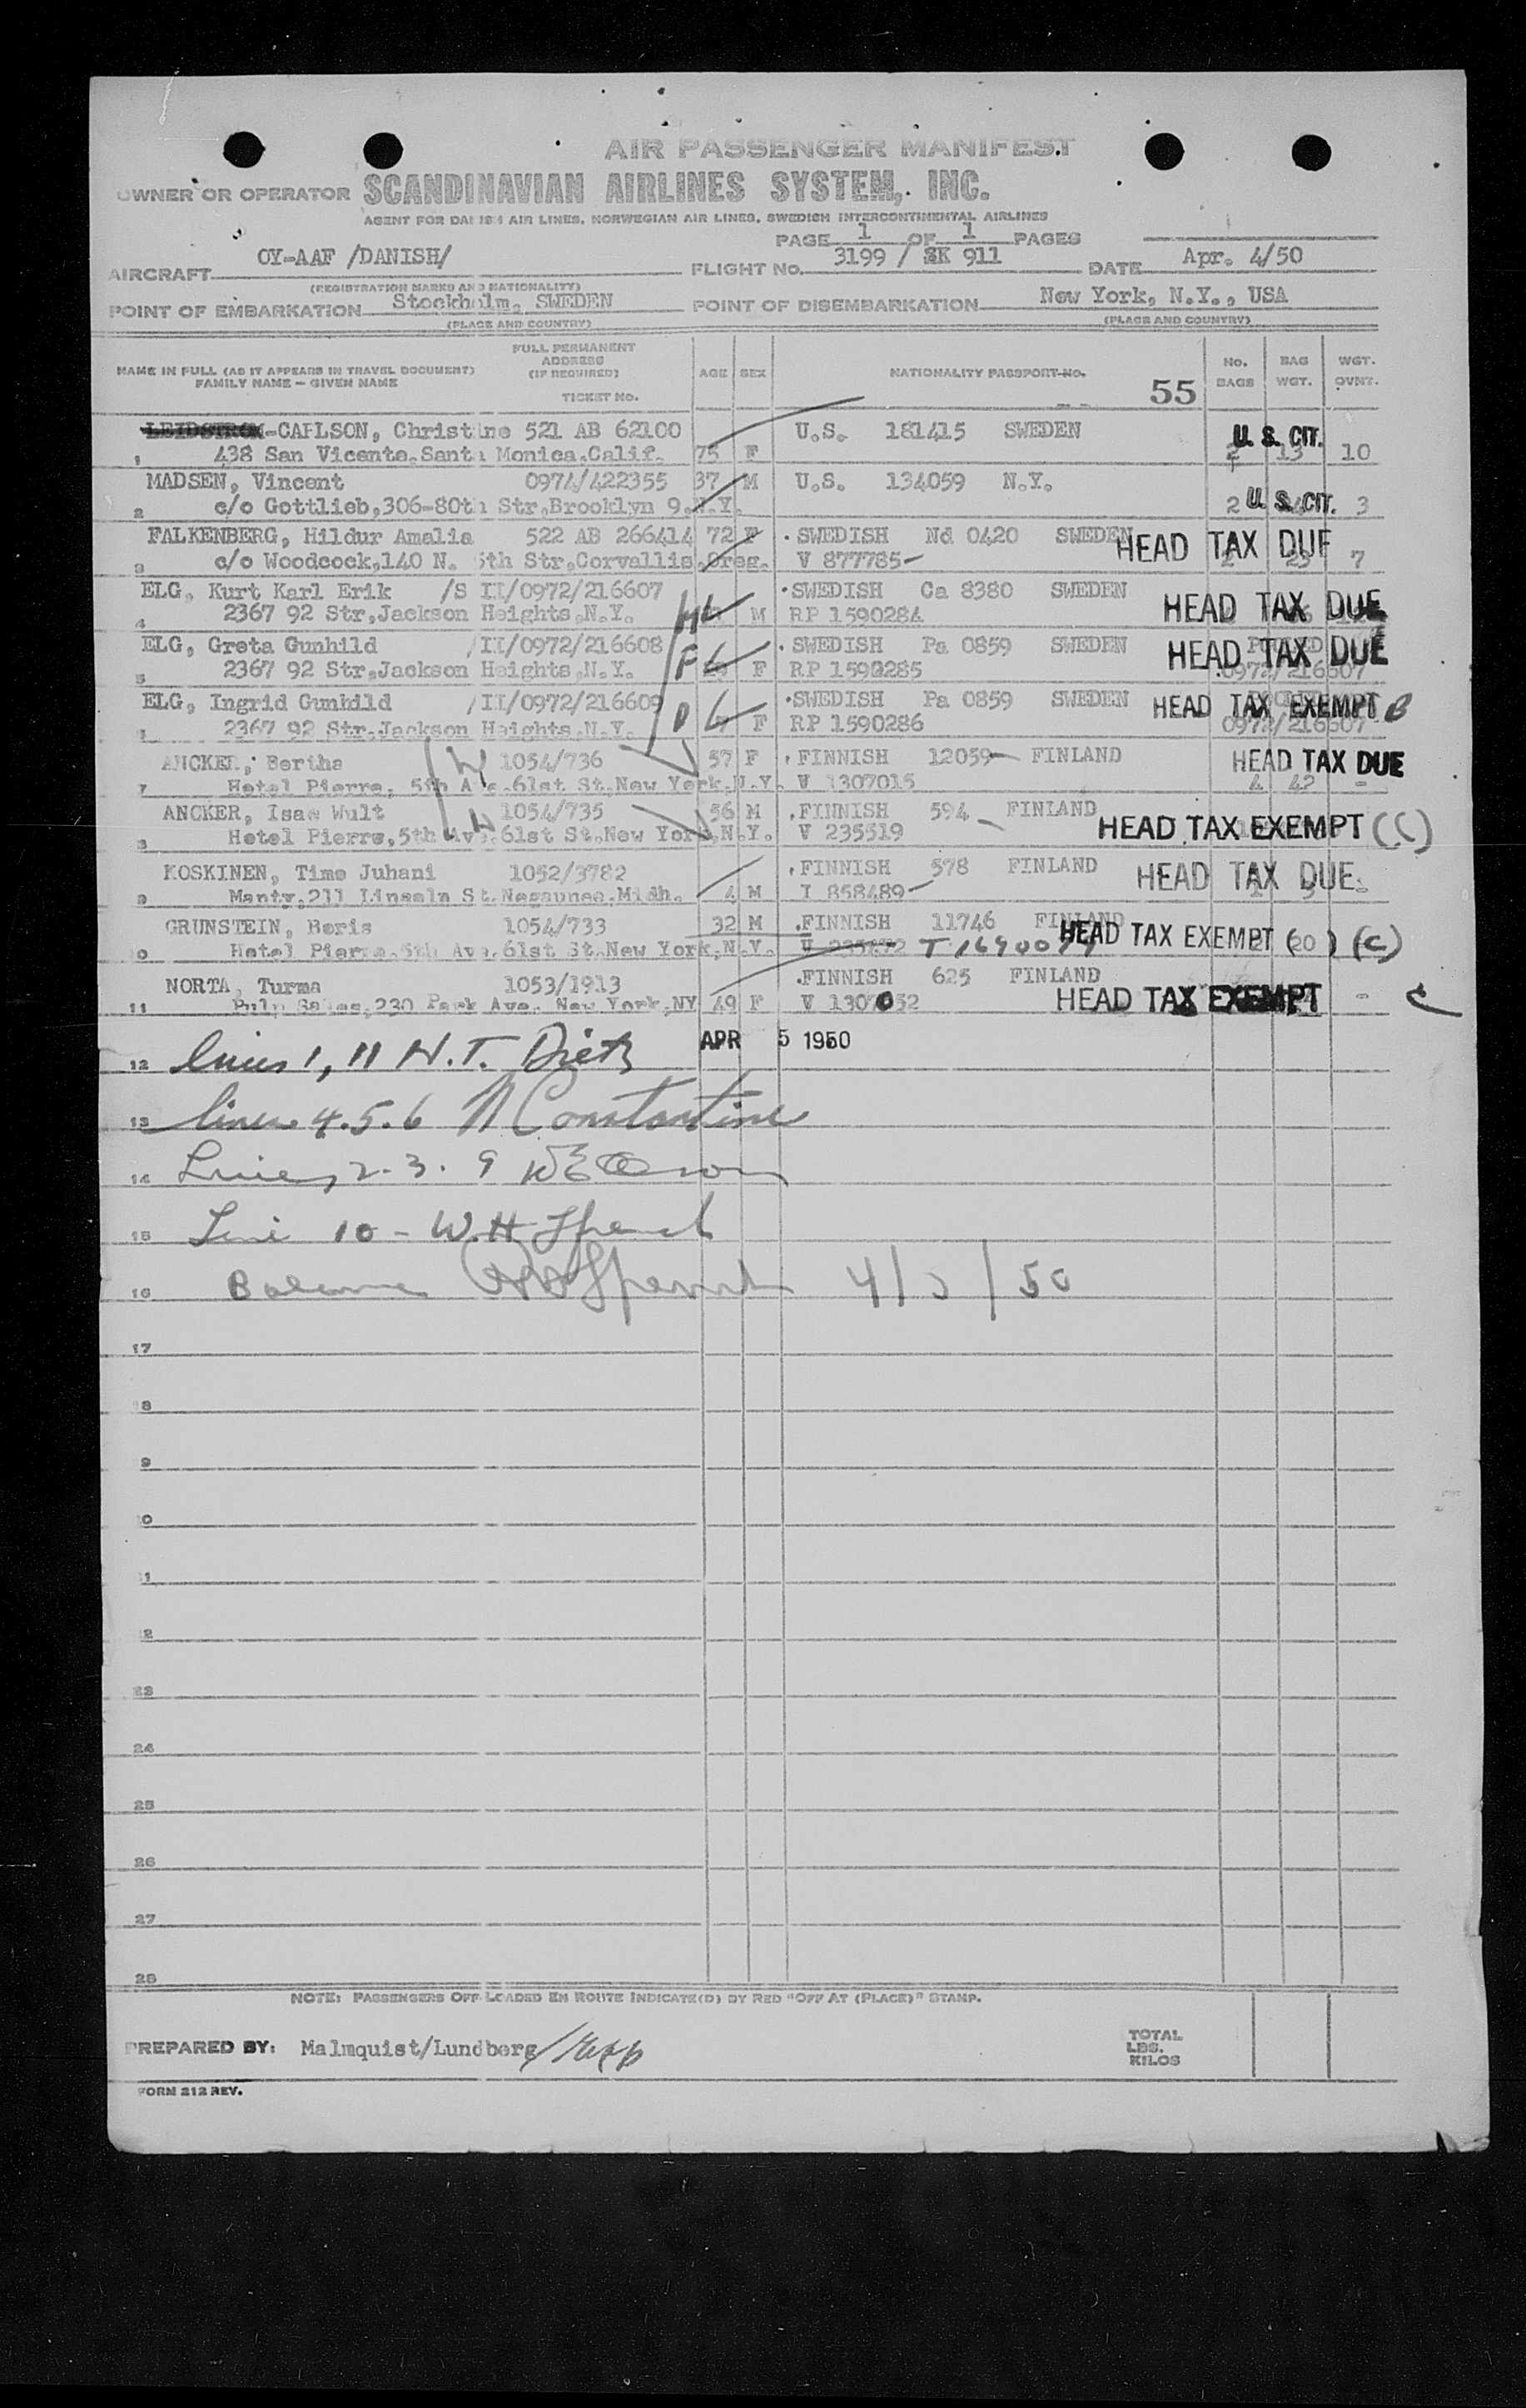 AIR PASSENGER MANIFEST
OWNER OR OPERATOR SCANDINAVIAN AIRLINES SYSTEM, INC.
AGENT FOR DANISH AIR LINES, NORWEGIAN AIR LINES, SWEDISH INTERCONTINENTAL AIRLINES
PAGE 1 OF 1 PAGES
AIRCRAFT OY-AAF /DANISH/ FLIGHT No. 3199 / SK 911 DATE Apr. 4/50
(REGISTRATION MARKS AND NATIONALITY)
POINT OF EMBARKATION Stockholm, SWEDEN POINT OF DISEMBARKATION New York, N.Y., USA
(PLACE AND COUNTRY) (PLACE AND COUNTRY)
NAME IN FULL (AS IT APPEARS IN TRAVEL DOCUMENT) FAMILY NAME - GIVEN NAME
FULL PERMANENT ADDRESS (IF REQUIRED) TICKET No.
AGE SEX NATIONALITY PASSPORT No. 55 No. BAGS BAG WGT. WGT. OVWT.
LEIDSTROM-CARLSON, Christine 521 AB 62100 U.S. 181415 SWEDEN U. S. CIT.
1 438 San Vicente.Santa Monica.Calif. 75 F 2 13 10
MADSEN, Vincent 0974/422355 37 M U.S. 134059 N.Y.
2 c/o Gottlieb,306-80th Str.Brooklyn 9.N.Y. 2 U. S. CIT. 3
FALKENBERG, Hildur Amalia 522 AB 266414 72 F SWEDISH Nd 0420 SWEDEN HEAD TAX DUE
3 c/o Woodcock,140 N. 5th Str,Corvallis.Oreg. V 877785 2 23 7
ELG, Kurt Karl Erik /S II/0972/216607 SWEDISH Ca 8380 SWEDEN
4 2367 92 Str,Jackson Heights,N.Y. M RP 1590284 HEAD TAX DUE
ELG, Greta Gunhild /II/0972/216608 SWEDISH Pa 0859 SWEDEN HEAD TAX DUE
5 2367 92 Str,Jackson Heights,N.Y. F RP 1590285 0972/216607
ELG, Ingrid Gunhild /II/0972/216609 SWEDISH Pa 0859 SWEDEN HEAD TAX EXEMPT B
2367 92 Str.Jackson Heights,N.Y. F RP 1590286 0972/216607
ANCKER, Bertha W 1054/736 57 F FINNISH 12059 FINLAND HEAD TAX DUE
7 Hotel Pierre, 5th Ave.61st St.New York.N.Y. V 1307015 4 42 -
ANCKER, Isae Wult H 1054/735 56 M FINNISH 594 FINLAND
Hotel Pierre,5th Ave.61st St.New York,N.Y. V 235519 HEAD TAX EXEMPT (C)
KOSKINEN, Timo Juhani 1052/3782 FINNISH 578 FINLAND HEAD TAX DUE
9 Manty,211 Lincoln St.Negaunee.Mich. 4 M I 858489
GRUNSTEIN, Boris 1054/733 32 M FINNISH 11746 FINLAND HEAD TAX EXEMPT (20) (C)
10 Hotel Pierre.5th Ave.61st St.New York,N.Y.
NORTA, Turma 1053/1913 FINNISH 625 FINLAND
11 Pulp Sales,230 Park Ave. New York,NY 49 F V 1307052 HEAD TAX EXEMPT - C
12 lines 1, 11 H.T. Dietz APR 5 1950
13 lines 4.5.6 Constantine
14 Lines 2. 3. 9
15 Line 10 - W.H.
16 Balance 50
17
18
9
20
21
22
23
24
25
26
27
28
NOTE: PASSENGERS OFF-LOADED EN ROUTE INDICATE(D) BY RED "OFF AT (PLACE)" STAMP.
PREPARED BY: Malmquist/Lundberg TOTAL LBS. KILOS
FORM 212 REV.